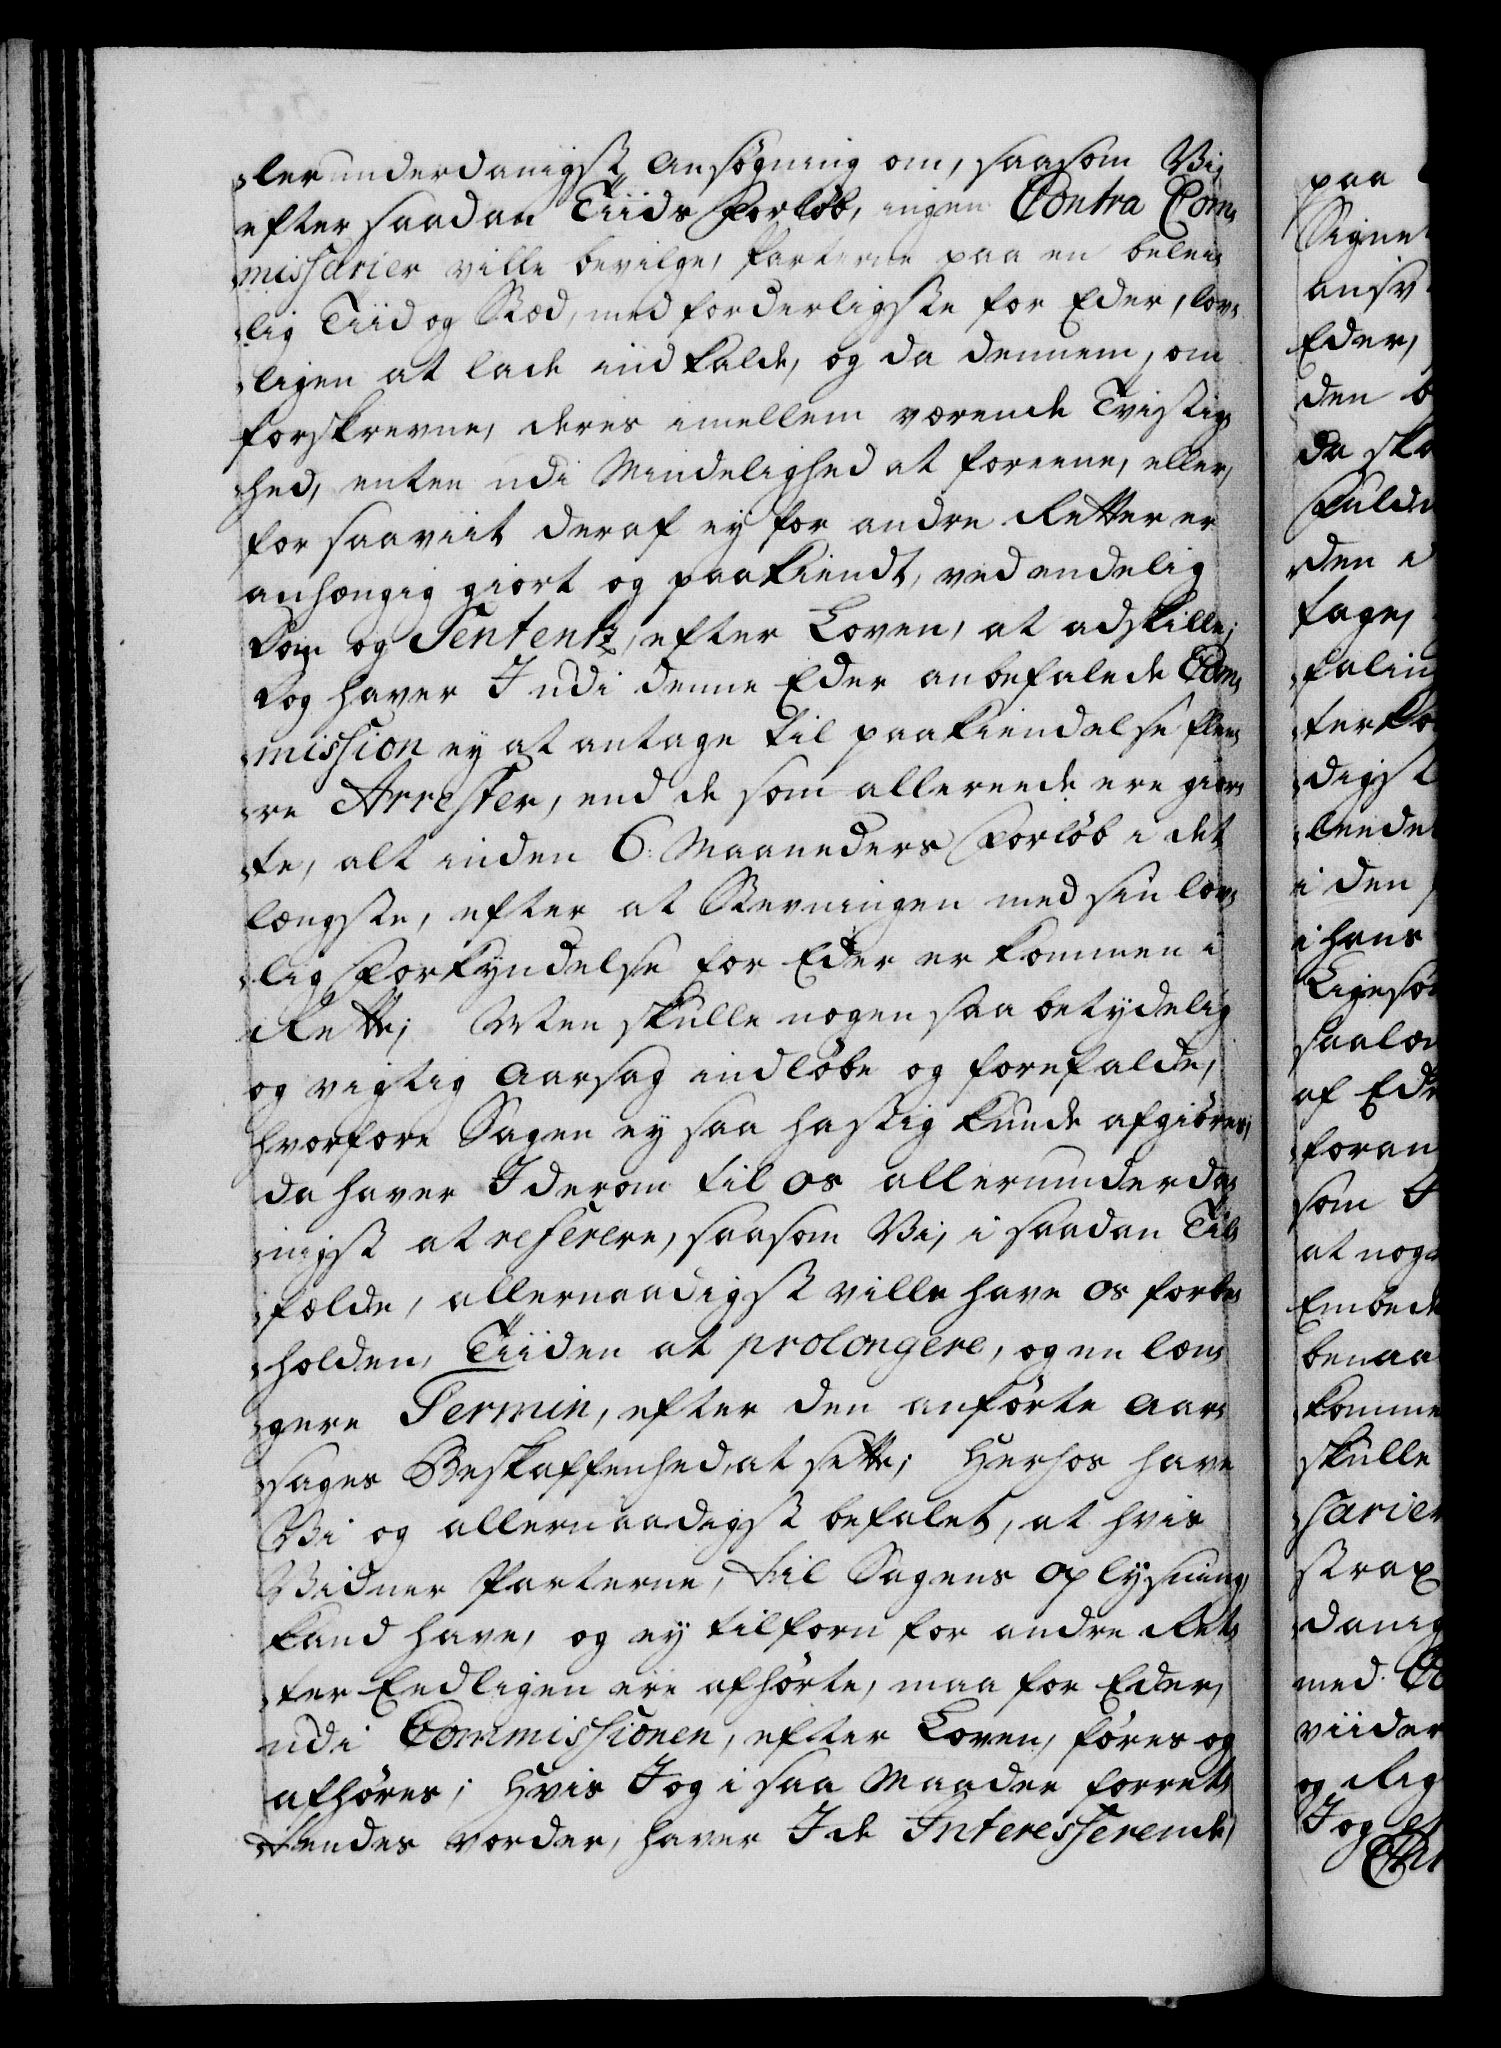 lerunderdanigst Ansøgning om, saasom Vi,
efter saadan Tiids Forløb, ingen Contra Com-
missarier ville bevilge, Parterne paa en belei-
lig Tiid og Stæd, med forderligste for Eder, lov-
ligen at lade indkalde, og da dennem, om
forskrevne, deres imellem værende Tvistig-
hed, enten udi Mindelighed at foreene, eller,
for saaviit deraf ey for andre Retter er
anhængig giort og paakiendt, ved endelig
Dom og Sententz, efter Loven, at adskille;
Dog haver I udi denne Eder anbefalede Com-
mission ey at antage til paakiendelse flee-
re Arrester, end de som allereede ere gior-
te, alt inden 6. Maaneders Forløb i det
længste, efter at Stevningen med sin lov-
lig Forkyndelse for Eder er kommen i
Rette; Men skulle nogen saa betydelig
og vigtig Aarsag indløbe og forefalde,
hvorfore Sagen ey saa hastig kunde afgiøres,
da haver I derom til os allerunderda-
nigst at referere, saasom Vi, i saadan Til-
fælde, allernaadigst ville have os forbe-
holden, Tiiden at prolongere, og en læn-
gere Termin, efter den anførte Aar-
sages Beskaffenhed, at sette; Herhos have
Vi og allernaadigst befalet, at hvis
Vidner Parterne, til Sagens Oplysning,
kand have, og ey tilforn for andre Ret-
ter Eedligen ere afhørte, maa for Eder,
udi Commissionen, efter Loven, føres og
afhøres; Hvis I og i saa Maader forret-
tendes vorder, haver I de Interesserende,
paa
Signet
ansv
Eder,
den b
da ska
Fulde
den i
tage,
falin
terko
digst
leede
i den
i hans
Ligesø
saalæ
af Ede
foran
som I
at nog
Embede
benaa
komme
skulle
sarier
strax
danig
med Co
viider
og Rig
I og er